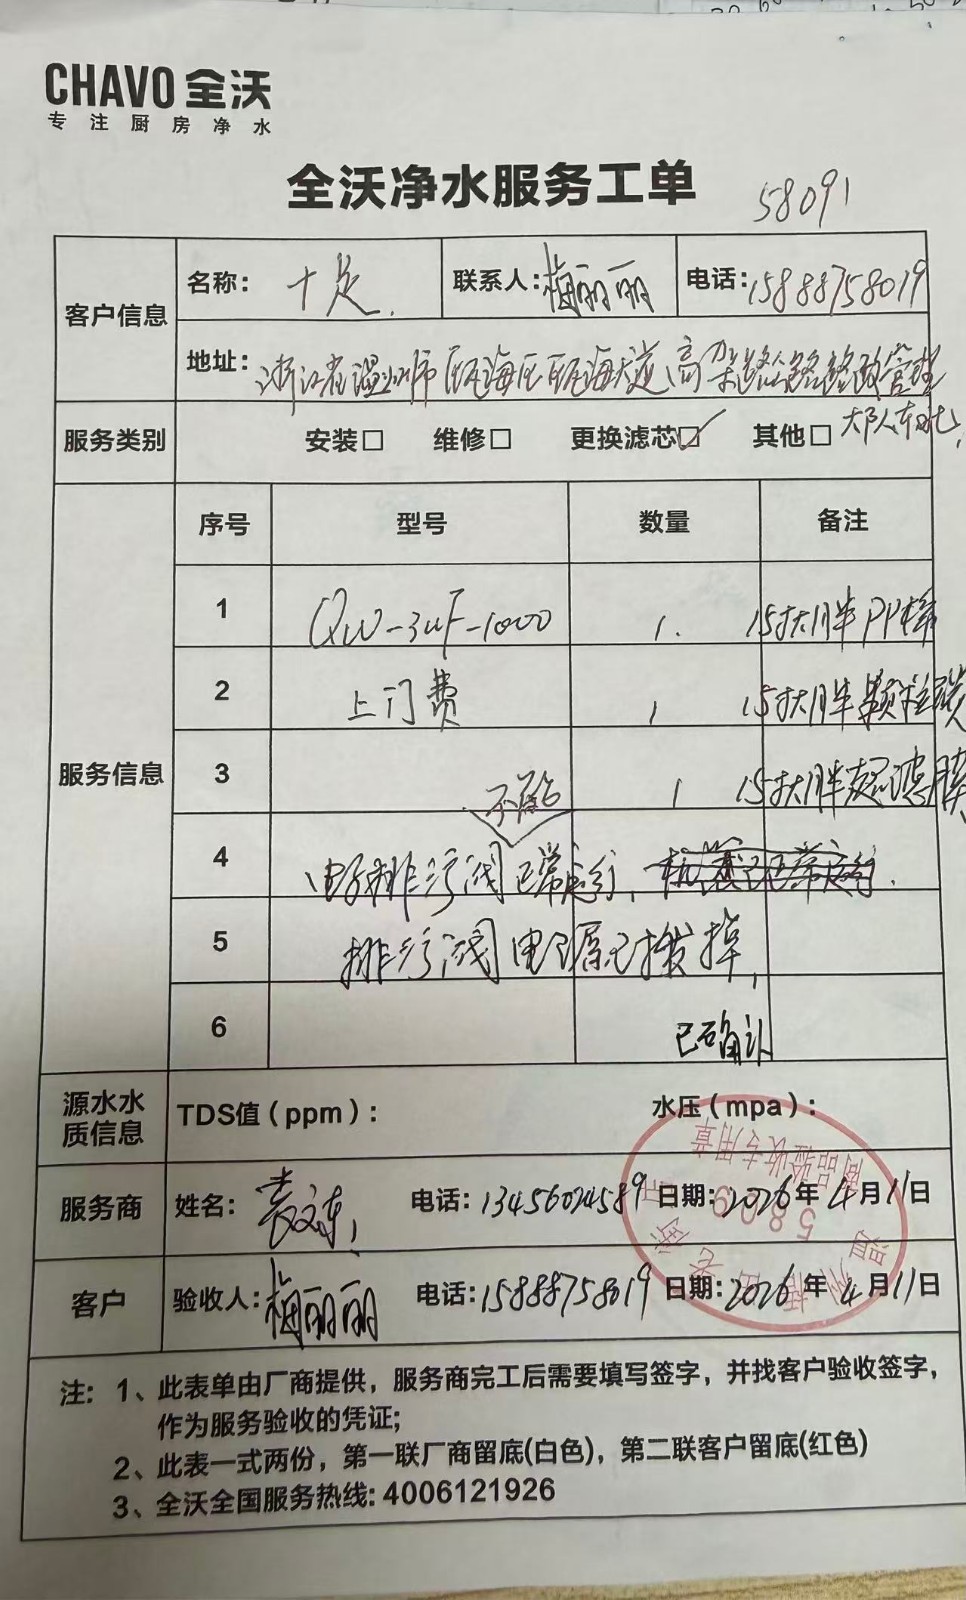 CHAVO 全沃
专注厨房净水
全沃净水服务工单
58091
客户信息
名称： 十足
联系人：梅丽丽
电话：15888758019
地址：浙江省温州市瓯海区瓯海大道高架路公路路政管理
大队东北
服务类别 安装□ 维修□ 更换滤芯☑ 其他□
服务信息
序号 型号 数量 备注
1 QW-3UF-1000 1. 15寸大胖PP棉
2 上门费 1 15寸大胖颗粒碳
3 1 15寸大胖超滤膜
不能
4 正常运行，
5 排污阀电源已拨掉，
6 已确认
源水水质信息 TDS值（ppm）： 水压（mpa）：
服务商 姓名：袁文东 电话：13456024589 日期：2026年4月11日
客户 验收人：梅丽丽 电话：15888758019 日期：2026年4月11日
商品验收专用章
5809
注：1、此表单由厂商提供，服务商完工后需要填写签字，并找客户验收签字，
作为服务验收的凭证;
2、此表一式两份，第一联厂商留底(白色)，第二联客户留底(红色)
3、全沃全国服务热线: 4006121926